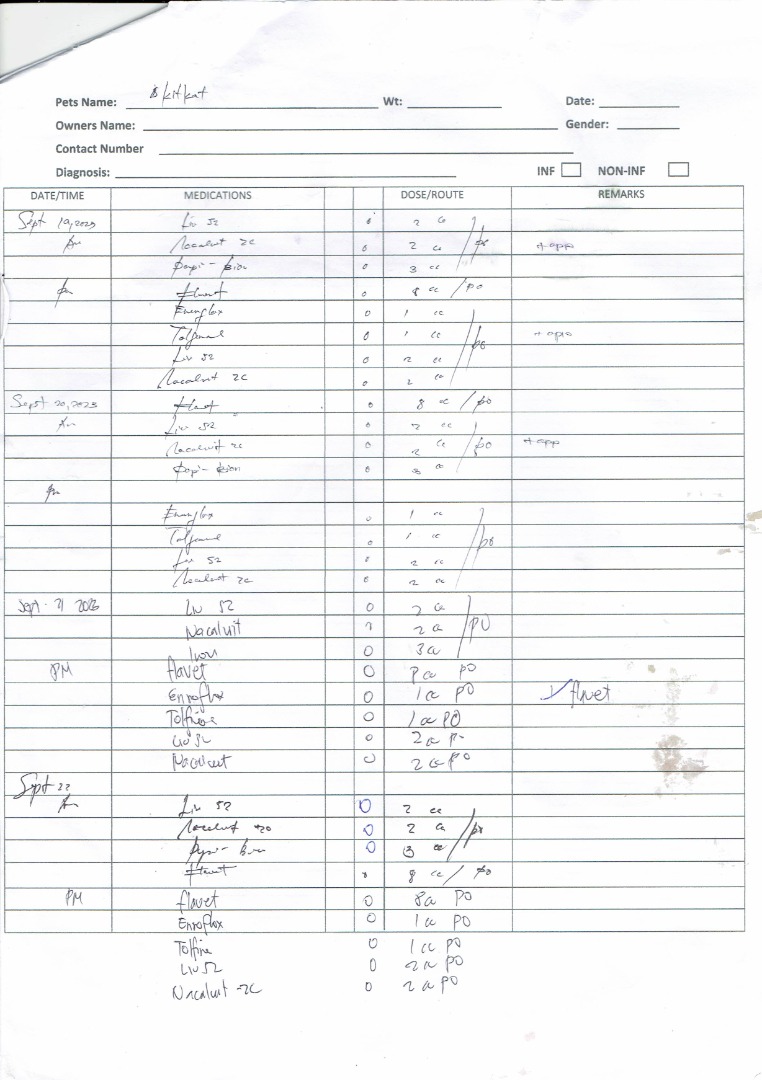 Pets Name: kitkat Wt: Date:
Owners Name: Gender:
Contact Number
Diagnosis: INF NON-INF
DATE/TIME MEDICATIONS DOSE/ROUTE REMARKS
Sept 19,2023 Liv 52 2 cc
Am Nacalvit 2C 2 cc /po + app
Papi-bion 3 cc
pm Flavet 8 cc /po
Enroflox 1 cc
1 cc /po + app
Liv 52 2 cc
Nacalvit 2C 2 cc
Sept 20,2023 Flavet 8 cc /po
Am Liv 52 2 cc
Nacalvit 2C 2 cc /po + app
Papi-bion 3 cc
pm
Enroflox 1 cc
1 cc /po
Liv 52 2 cc
Nacalvit 2C 2 cc
Sept 21 2023 Liv 52 2 cc
Nacalvit 2 cc /PO
Iron 3 cc
PM flavet 8 cc PO
Enroflox 1 cc PO flavet
Tolfine 1 cc PO
Liv 52 2 cc PO
Nacalvit 2 cc PO
Sept 22
Am Liv 52 2 cc
Nacalvit 2 cc /po
Papi-bion 3 cc
Flavet 8 cc / po
PM flavet 8 cc PO
Enroflox 1 cc PO
Tolfine 1 cc PO
Liv 52 2 cc PO
Nacalvit 2C 2 cc PO